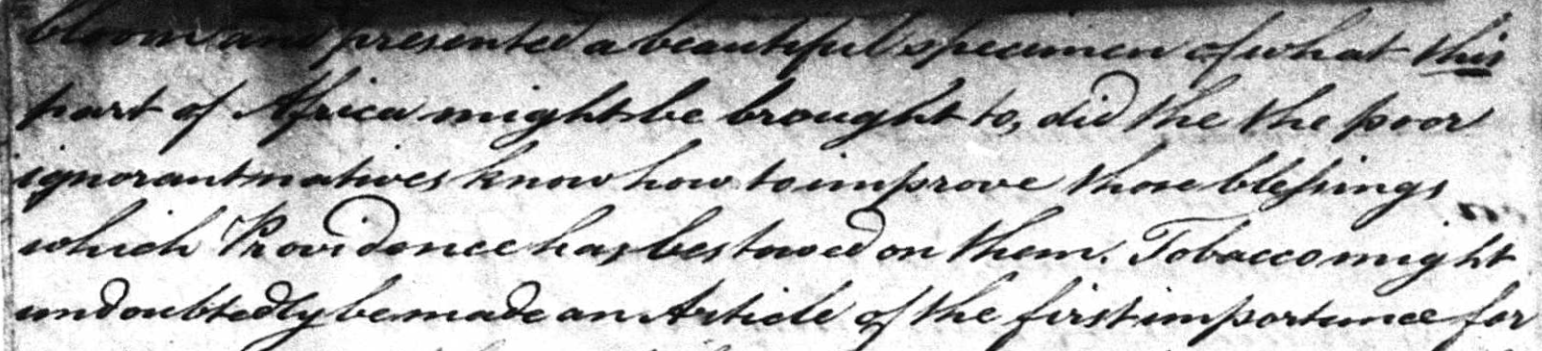 bloom and presented a beautiful specimen of what this
part of Africa might be brought to, did the the poor
ignorant natives know how to improve those blessings
which Providence has bestowed on them. Tobacco might
undoubtedly be made an Article of the first importance for